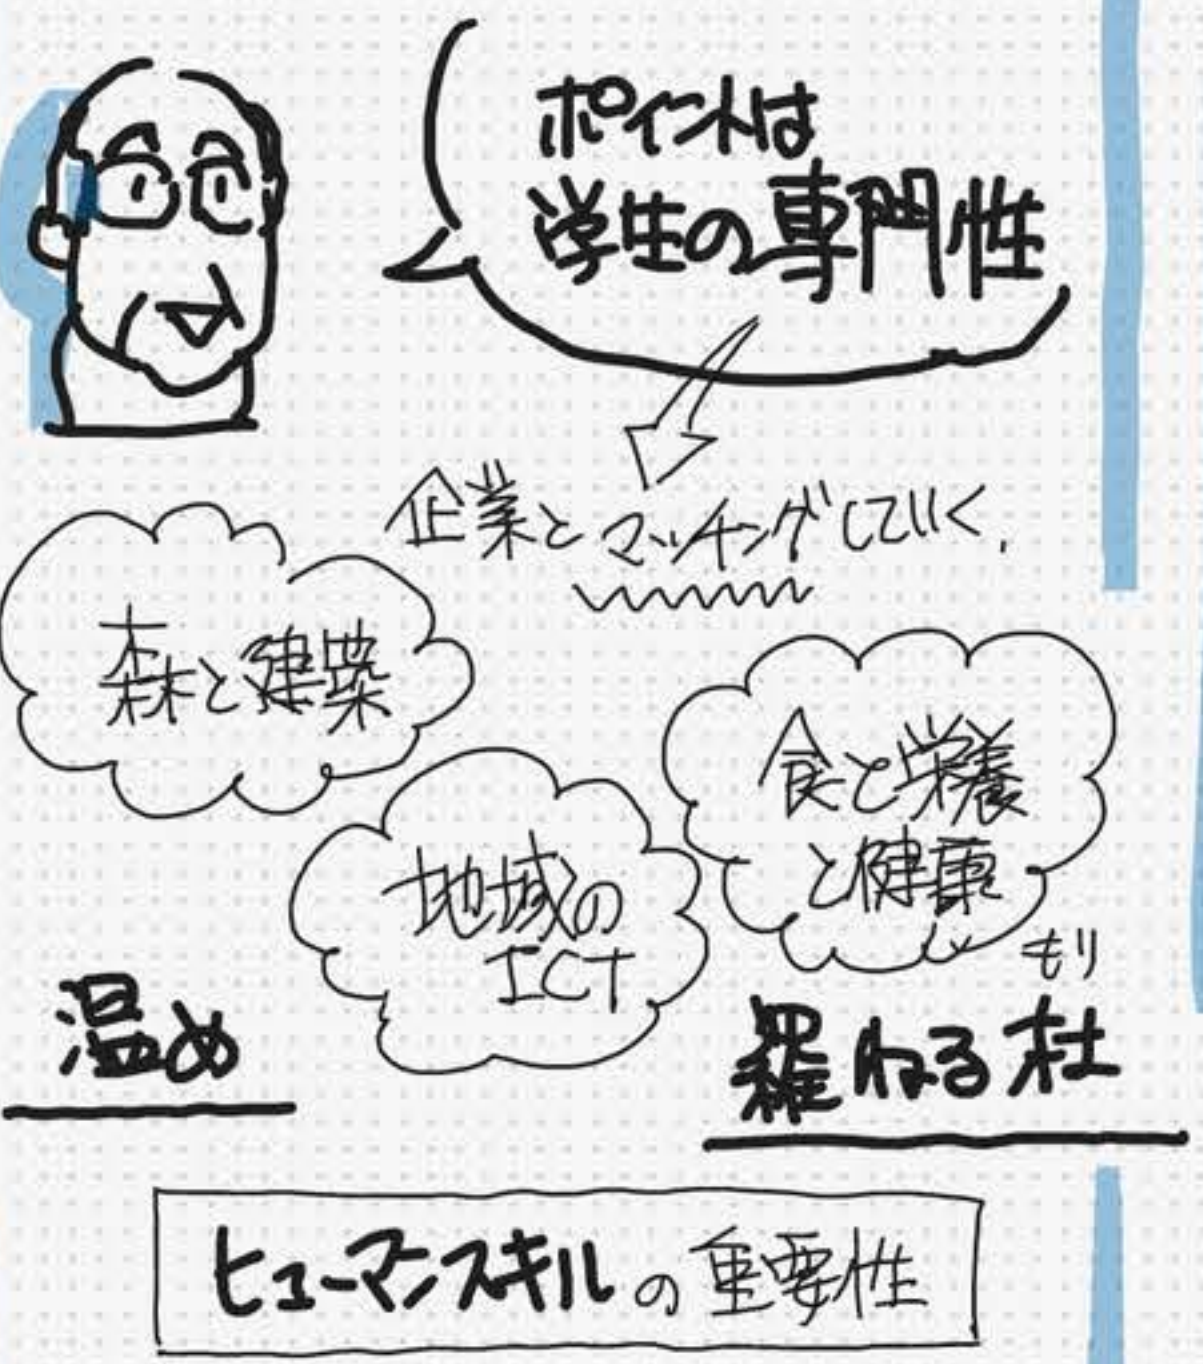 ポイントは
学生の専門性
企業とマッチングしていく.
森と建築
食と栄養
と健康
地域の
ICT
温め
もり
羅ねる杜
ヒューマンスキルの重要性